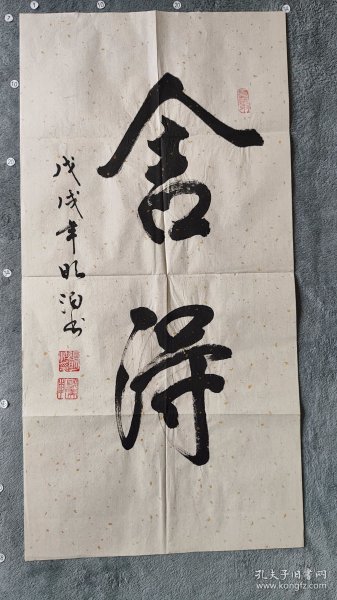 舍得
戊戌年明泊书
孔夫子旧书网
www.kongfz.com